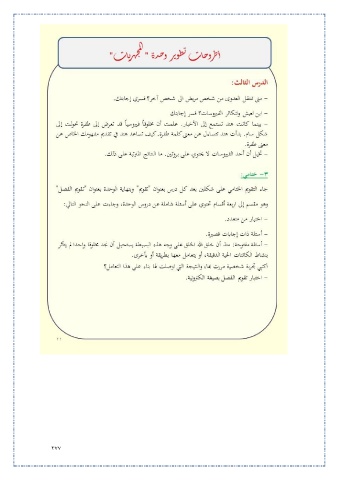 أطروحات تطوير وحدة "المجهريات"
الدرس الثالث:
– متى تنتقل العدوى من شخص مريض إلى شخص آخر؟ فسري إجابتك.
– أين تعيش وتتكاثر الفيروسات؟ فسر إجابتك
– بينما كانت هند تستمع إلى الأخبار. علمت أن مخلوقاً فيروسياً قد تعرض إلى طفرة تحولت إلى
شكل سام. بدأت هند تتساءل عن معنى كلمة طفرة. كيف تساعد هند في تقديم مفهومك الخاص عن
معنى طفرة.
– تخيل أن أحد الفيروسات لا يحتوي على بروتين. ما النتائج المترتبة على ذلك.
٣- ختامي:
جاء التقويم الختامي على شكلين بعد كل درس بعنوان "تقويم" وبنهاية الوحدة بعنوان "تقويم الفصل"
وهو مقسم إلى أربعة أقسام تحتوي على أسئلة شاملة عن دروس الوحدة، وجاءت على النحو التالي:
– اختيار من متعدد.
– أسئلة ذات إجابات قصيرة.
– أسئلة مفتوحة: منذ أن خلق الله الخلق على وجه هذه البسيطة يستحيل أن نجد مخلوقاً واحداً لم يتأثر
بنشاط الكائنات الحية الدقيقة، أو يتعامل معها بطريقة أو بأخرى.
اكتبي تجربة شخصية مررت بها، والنتيجة التي توصلت لها بناء على هذا التعامل؟
– اختبار تقويم الفصل بصيغة الكترونية.
١١
٢٧٧